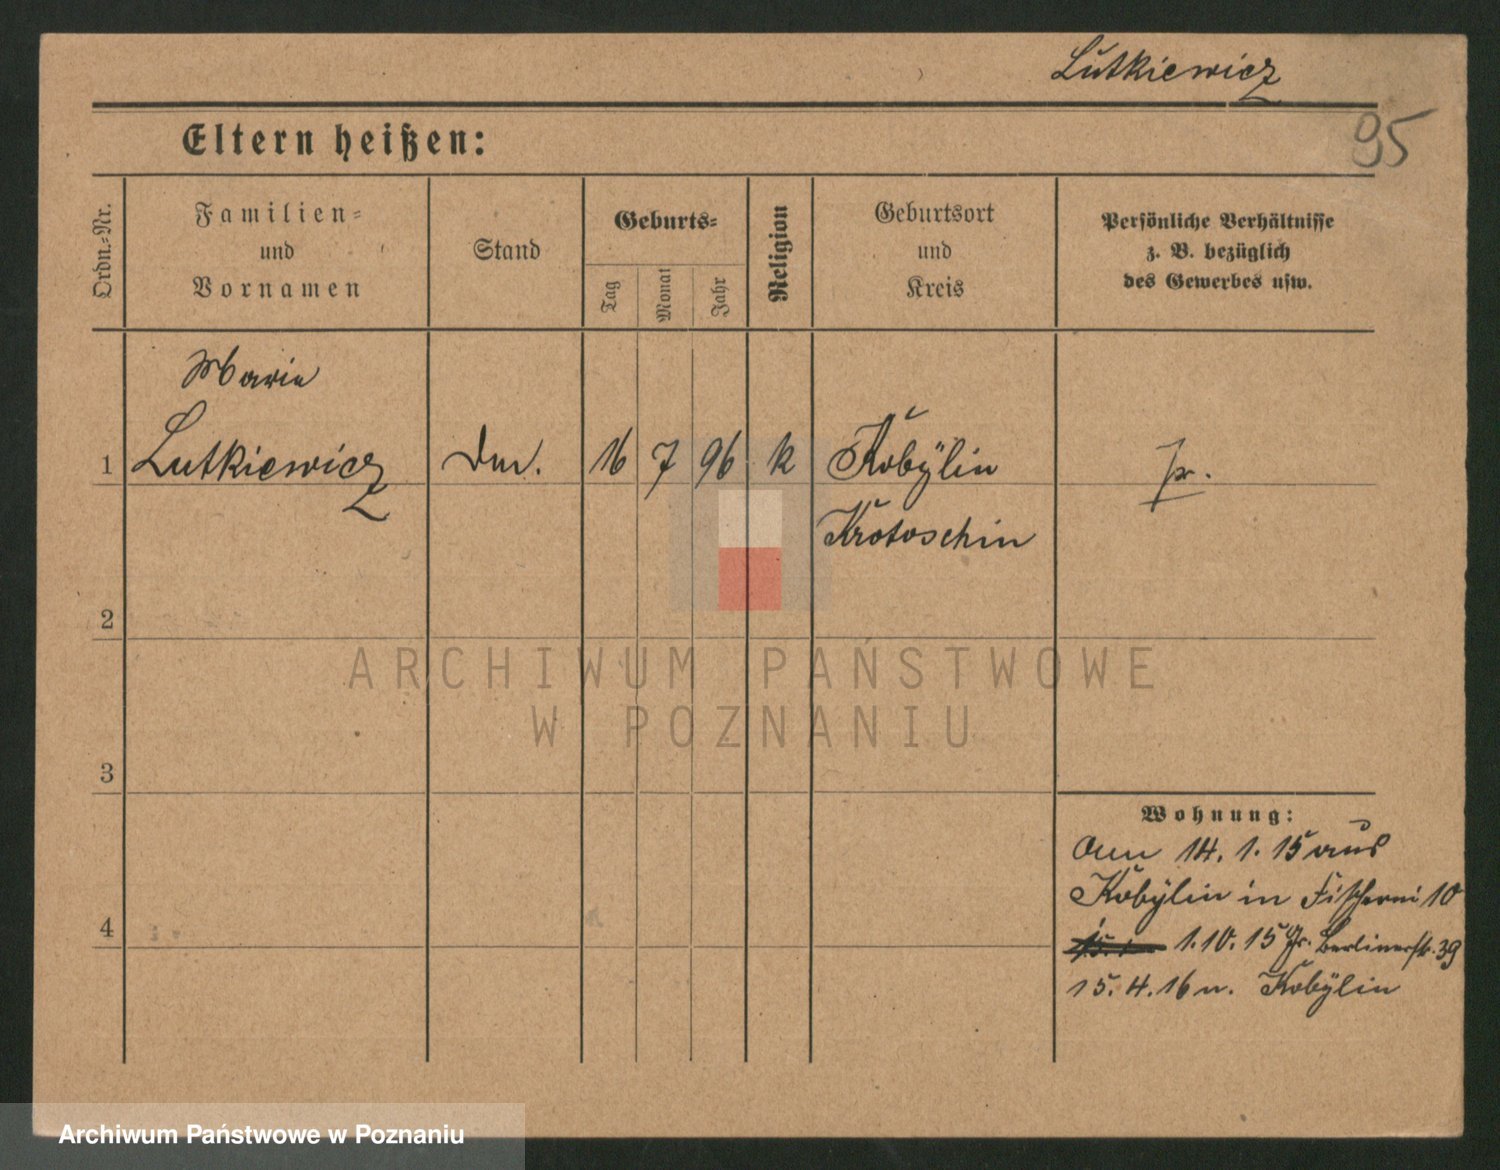 Lutkiewicz
95
Eltern heißen:
Ordn.-Nr.
Familien-
und
Vornamen
Stand
Geburts-
Tag
Monat
Jahr
Religion
Geburtsort
und
Kreis
Persönliche Verhältnisse
z. B. bezüglich
des Gewerbes usw.
Marie
1 Lutkiewicz 16 7 96 k Kobylin pr.
Krotoschin
2
3
4
ARCHIWUM PAŃSTWOWE
W POZNANIU
Wohnung:
14. 1. 15 aus
Kobylin in Fischerei 10
1. 10. 15 Berlinerstr. 39
15. 4. 16 n. Kobylin
Archiwum Państwowe w Poznaniu